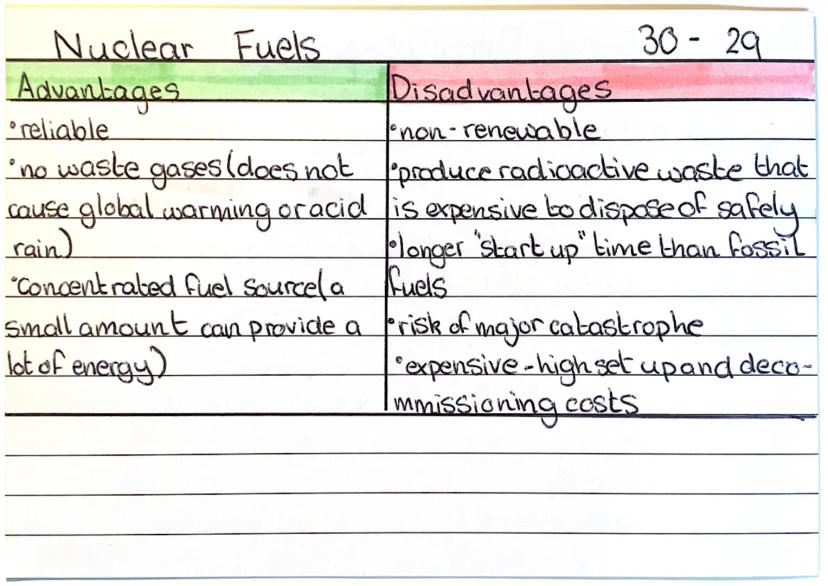 Nuclear Fuels 30 - 29
Advantages
•reliable
•no waste gases(does not
cause global warming or acid
rain)
•concentrated fuel source(a
small amount can provide a
lot of energy)
Disadvantages
•non-renewable
•produce radioactive waste that
is expensive to dispose of safely
•longer "start up" time than fossil
fuels
•risk of major catastrophe
•expensive-high set up and deco-
mmissioning costs